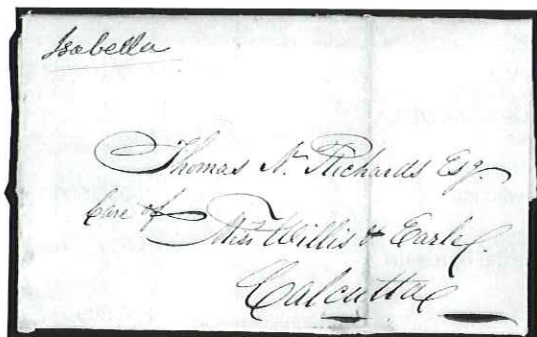 Isabella
Thomas N. Richards Esq.
Care of Messrs Willis & Earle
Calcutta